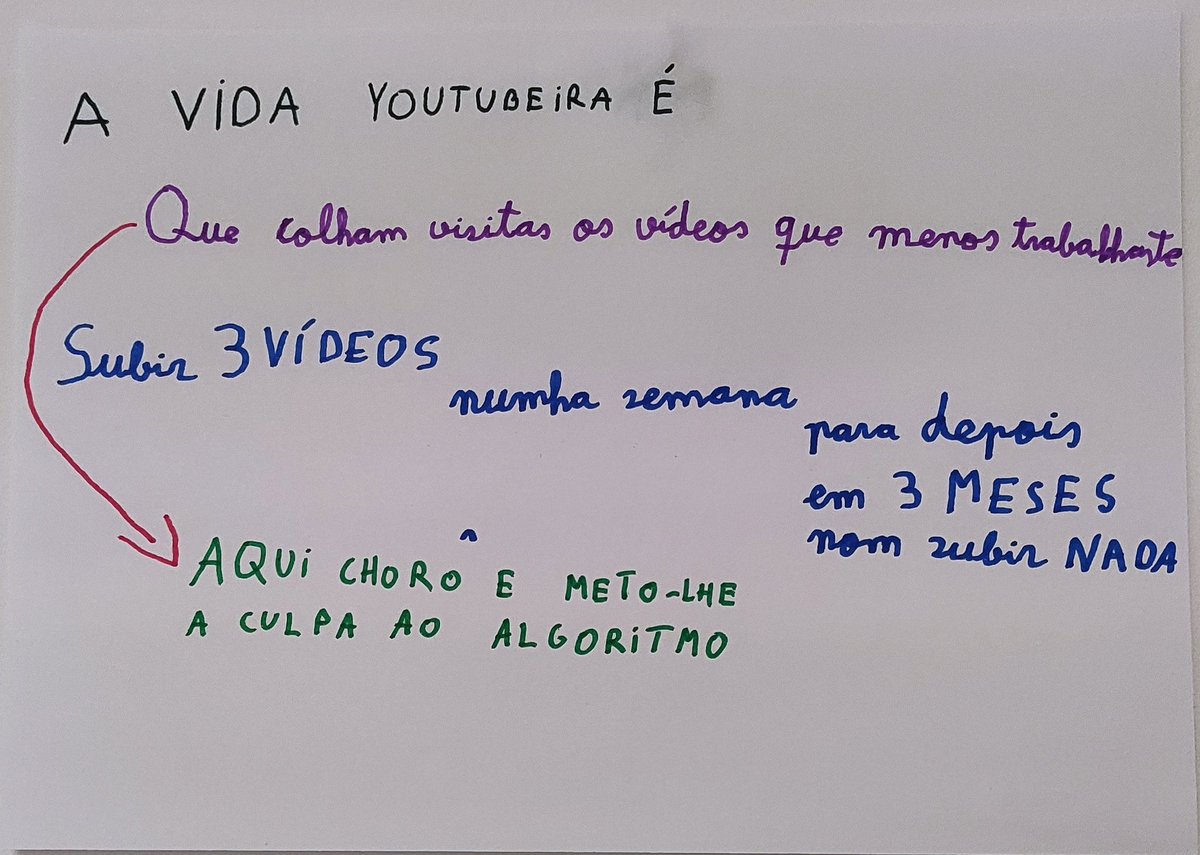 A VIDA YOUTUBEIRA É
Que colham visitas os vídeos que menos trabalhaste
Subir 3 VÍDEOS
numha semana
para depois
em 3 MESES
nom subir NADA
AQUI CHORO E METO-LHE
A CULPA AO ALGORITMO